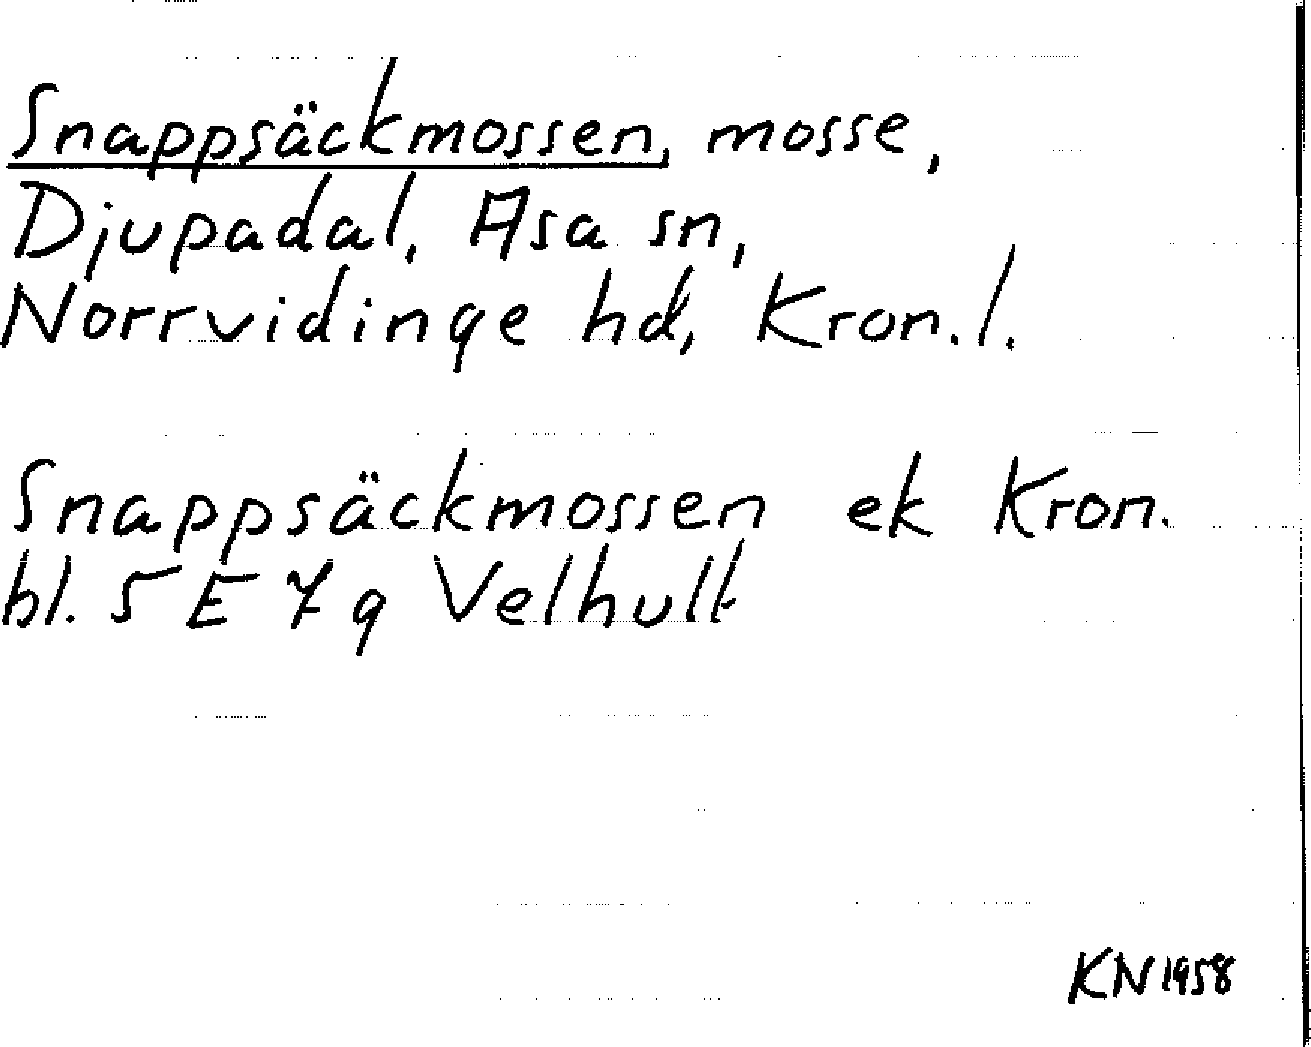 Snappsäckmossen, mosse,
Djupadal, Asa sn,
Norrvidinge hd, Kron. l.
Snappsäckmossen ek Kron.
bl. 5 E 7 g Velhult
KN 1958